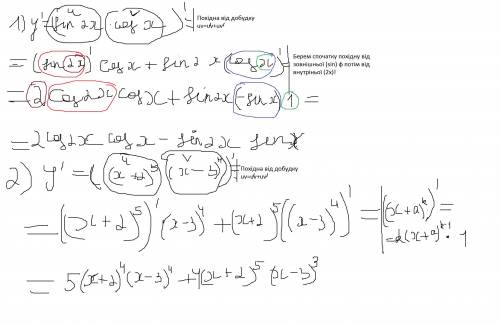 1) y' = (sin 2x · cos x)' = Похідна від добутку
uv=u'v+uv'
= (sin 2x)' cos x + sin 2x (cos x)' = Берем спочатку похідну від
зовнішньої (sin) ф потім від
внутрішньої (2x)!
= 2 cos 2x cos x + sin 2x (-sin x) 1 =
= 2 cos 2x cos x - sin 2x sin x
2) y' = ((x+2)^5 (x-3)^4)' = Похідна від добутку
= ((x+2)^5)' (x-3)^4 + (x+2)^5 ((x-3)^4)' = ((x+a)^k)' =
= k(x+a)^k-1 · 1
= 5(x+2)^4 (x-3)^4 + 4(x+2)^5 (x-3)^3